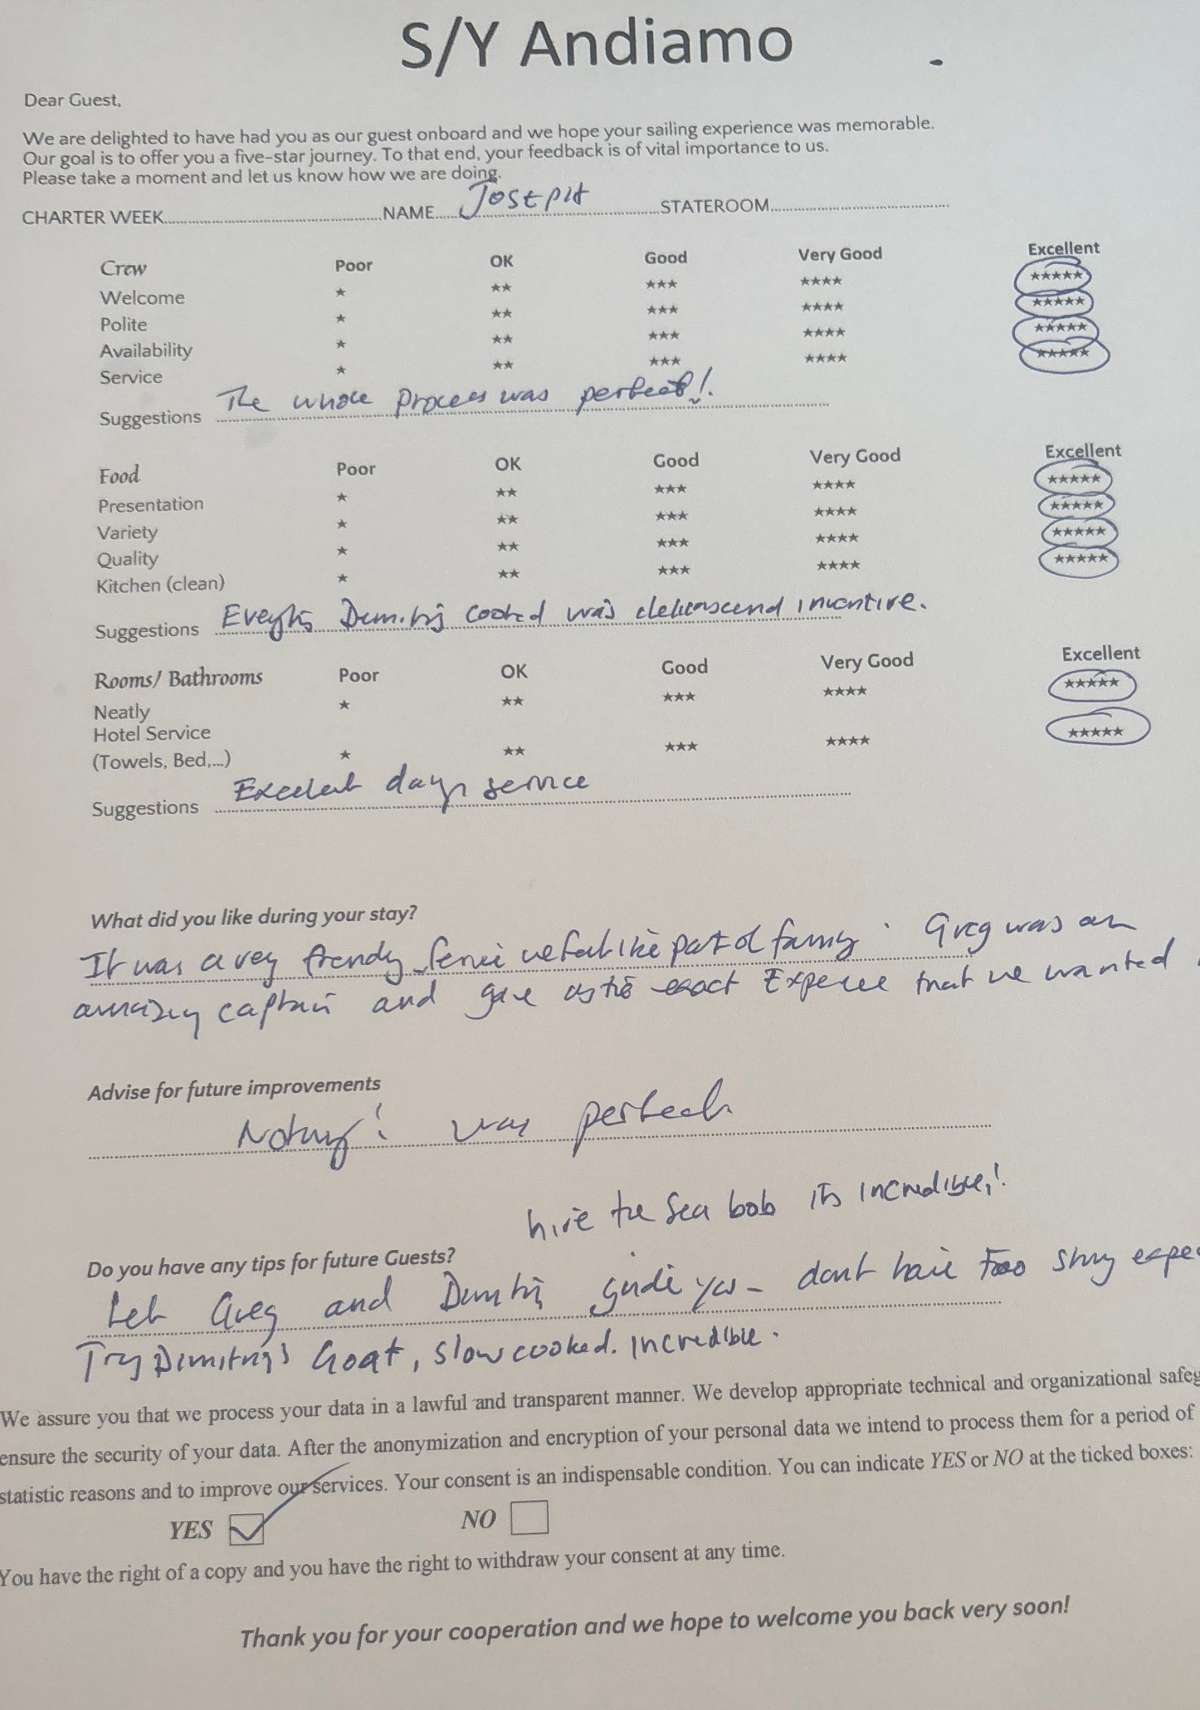 S/Y Andiamo
Dear Guest,
We are delighted to have had you as our guest onboard and we hope your sailing experience was memorable.
Our goal is to offer you a five-star journey. To that end, your feedback is of vital importance to us.
Please take a moment and let us know how we are doing.
CHARTER WEEK NAME Joseph STATEROOM
Crew Poor OK Good Very Good Excellent
Welcome ★ ★★ ★★★ ★★★★ ★★★★★
Polite ★ ★★ ★★★ ★★★★ ★★★★★
Availability ★ ★★ ★★★ ★★★★ ★★★★★
Service ★ ★★ ★★★ ★★★★ ★★★★★
Suggestions The whole process was perfect!
Food Poor OK Good Very Good Excellent
Presentation ★ ★★ ★★★ ★★★★ ★★★★★
Variety ★ ★★ ★★★ ★★★★ ★★★★★
Quality ★ ★★ ★★★ ★★★★ ★★★★★
Kitchen (clean) ★ ★★ ★★★ ★★★★ ★★★★★
Suggestions cooked was inventive.
Rooms/ Bathrooms Poor OK Good Very Good Excellent
Neatly ★ ★★ ★★★ ★★★★ ★★★★★
Hotel Service
(Towels, Bed,...) ★ ★★ ★★★ ★★★★ ★★★★★
Suggestions Excellent service
What did you like during your stay?
It was a very friendly service we felt like part of family. Greg was an
amazing captain and gave us the exact experience that we wanted
Advise for future improvements
Nothing! was perfect
hire the Sea bob its incredible!
Do you have any tips for future Guests?
Let Greg and Dimitris guide you - dont have too
Try Dimitris's Goat, slow cooked. Incredible.
We assure you that we process your data in a lawful and transparent manner. We develop appropriate technical and organizational safeg
ensure the security of your data. After the anonymization and encryption of your personal data we intend to process them for a period of
statistic reasons and to improve our services. Your consent is an indispensable condition. You can indicate YES or NO at the ticked boxes:
YES NO
You have the right of a copy and you have the right to withdraw your consent at any time.
Thank you for your cooperation and we hope to welcome you back very soon!